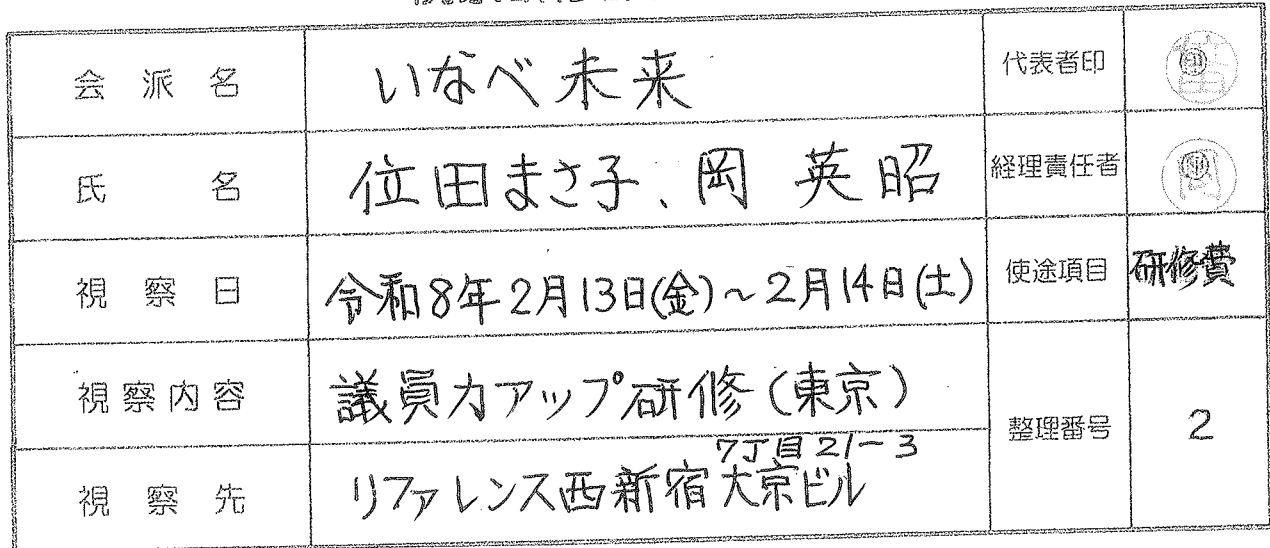 会派名 いなべ未来 代表者印 ㊞
氏名 位田まさ子、岡 英昭 経理責任者 岡 ㊞
視察日 令和8年2月13日(金)~2月14日(土) 使途項目 研修費
視察内容 議員力アップ研修(東京) 整理番号 2
7丁目21-3
視察先 リファレンス西新宿大京ビル